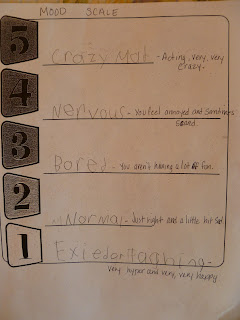 MOOD SCALE
5
Crazy Mad - Acting, very, very
crazy.
4
Nervous - You feel annoyed and sometimes
scared.
3
Bored - You aren't having a lot of fun.
2
Normal - Just right and a little bit sad.
1
-
Very hyper and very, very happy